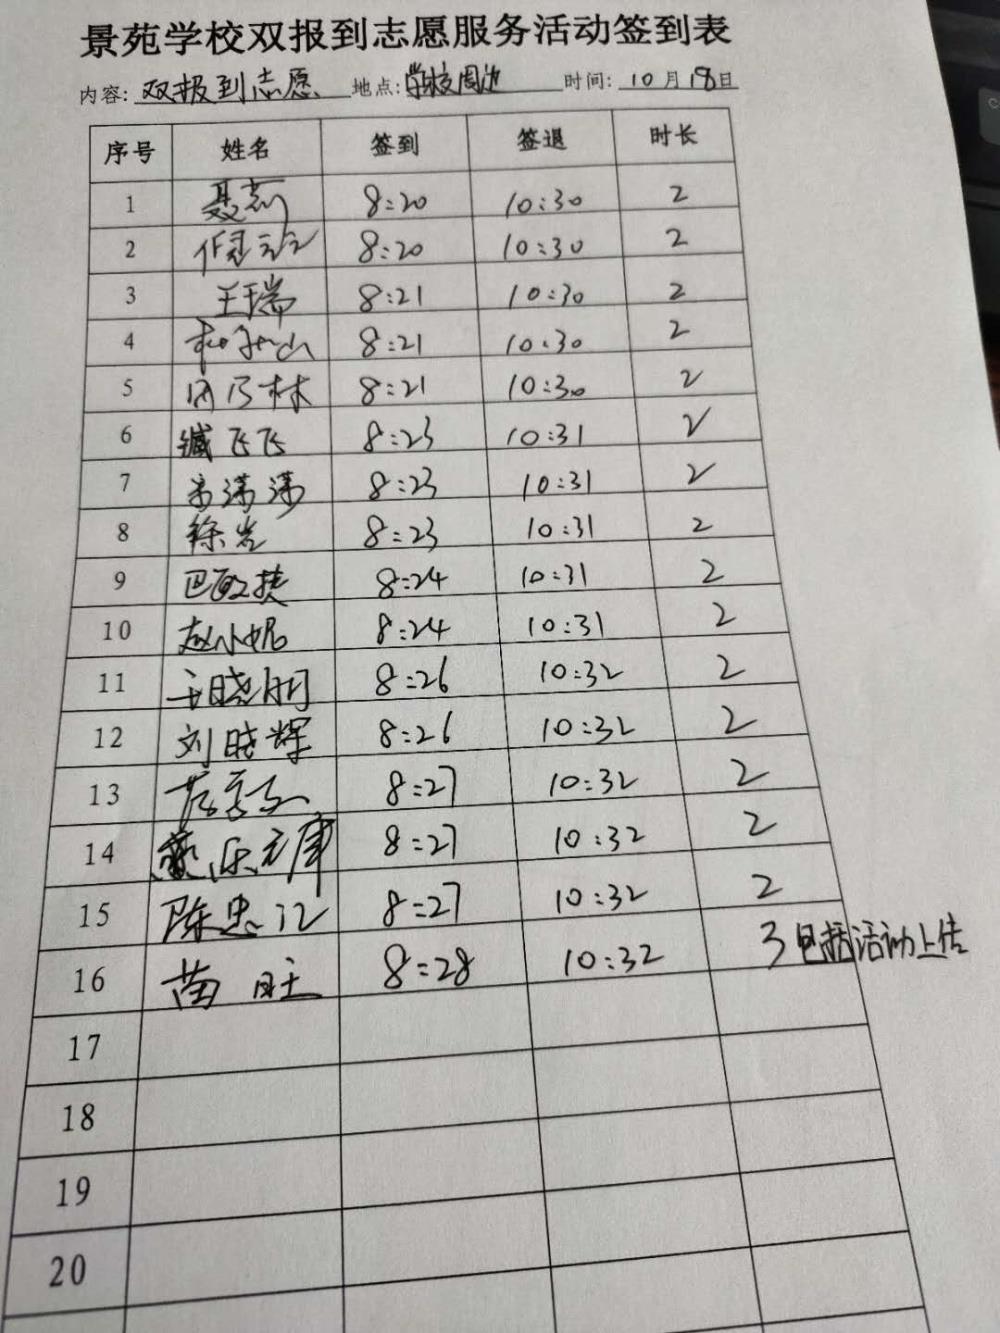 景苑学校双报到志愿服务活动签到表
内容: 双报到志愿 地点: 学校周边 时间: 10月18日
序号 姓名 签到 签退 时长
1 聂莉 8:20 10:30 2
2 8:20 10:30 2
3 王瑞 8:21 10:30 2
4 8:21 10:30 2
5 乃林 8:21 10:30 2
6 臧飞飞 8:23 10:31 2
7 潇潇 8:23 10:31 2
8 徐岩 8:23 10:31 2
9 巴敏捷 8:24 10:31 2
10 赵小妮 8:24 10:31 2
11 王晓朋 8:26 10:32 2
12 刘晓辉 8:26 10:32 2
13 8:27 10:32 2
14 8:27 10:32 2
15 陈忠江 8:27 10:32 2
16 苗旺 8:28 10:32 3包括活动上传
17
18
19
20